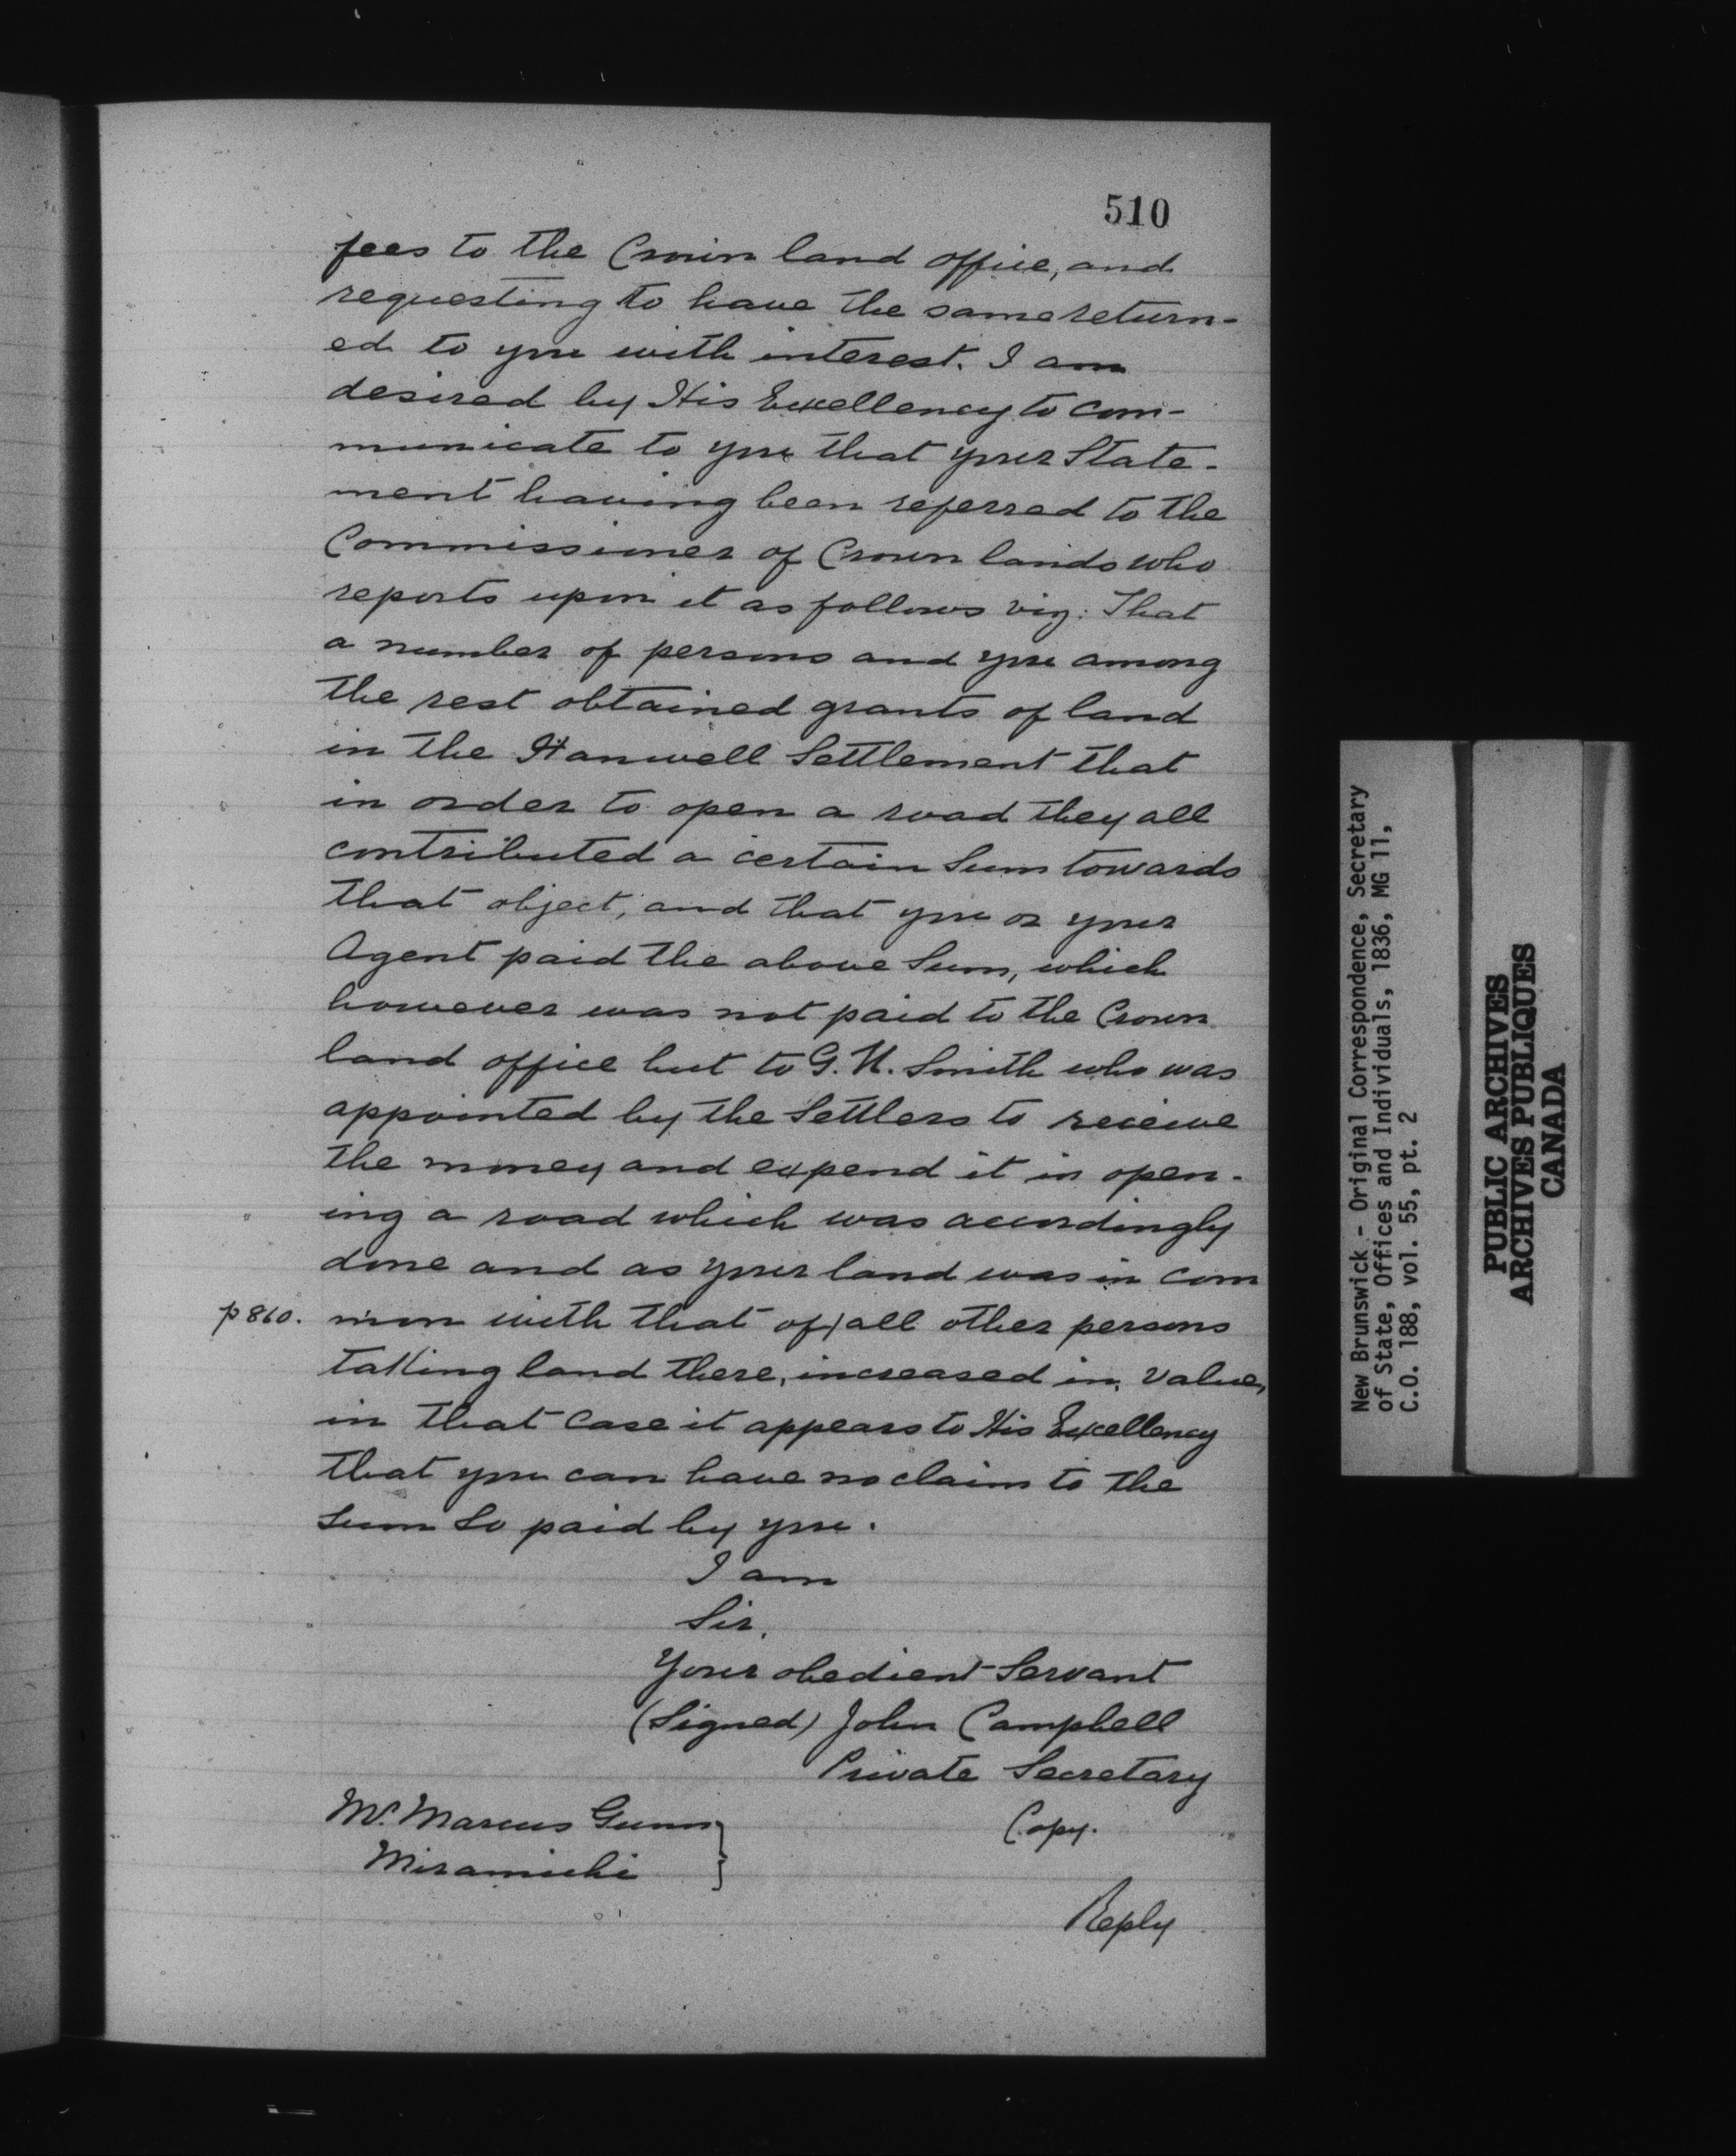 510
fees to the Crown land office, and
requesting to have the same return-
ed to you with interest. I am
desired by His Excellency to com-
municate to you that your State-
ment having been referred to the
Commissioner of Crown lands who
reports upon it as follows viz: That
a number of persons and you among
the rest obtained grants of land
in the Hanwell Settlement that
in order to open a road they all
contributed a certain Sum towards
that object, and that you or your
Agent paid the above Sum, which
however was not paid to the Crown
land office but to G. N. Smith who was
appointed by the Settlers to receive
the money and expend it in open-
ing a road which was accordingly
done and as your land was in com
p 860. mon with that of / all other persons
taking land there, increased in, value,
in that Case it appears to His Excellency
that you can have no claim to the
Sum So paid by you.
I am
Sir,
Your obedient Servant
(Signed) John Campbell
Private Secretary
Mr. Marcus Gunn
Miramichi
Copy.
Reply
New Brunswick - Original Correspondence, Secretary
of State, Offices and Individuals, 1836, MG 11,
C.O. 188, vol. 55, pt. 2
PUBLIC ARCHIVES
ARCHIVES PUBLIQUES
CANADA